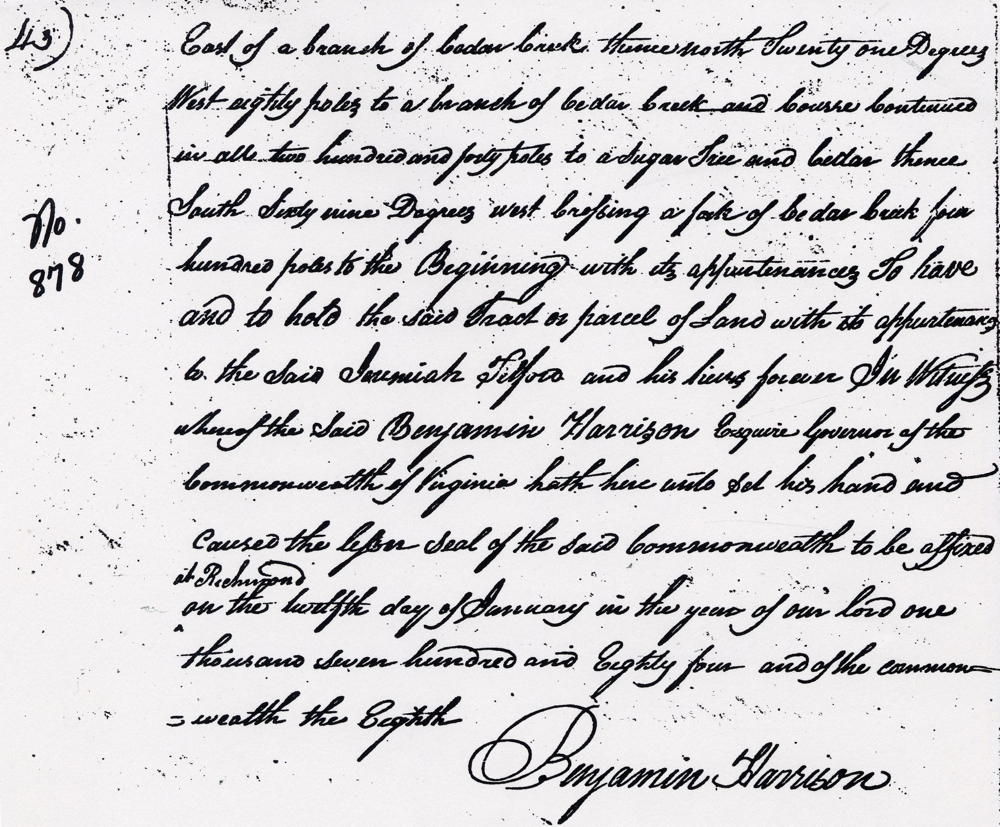 43)
East of a branch of Cedar Creek thence north Twenty one Degrees
West eighty poles to a branch of Cedar Creek and Course Continued
in all two hundred and forty poles to a Sugar Tree and Cedar thence
No. 878
South Sixty nine Degrees west Croſsing a fork of Cedar Creek four
hundred poles to the Beginning with its appurtenances To have
and to hold the said Tract or parcel of Land with its appurtenances
to the Said Jeremiah Tilford and his heirs forever In Witneſs
whereof the Said Benjamin Harrison Esquire Governor of the
Commonwealth of Virginia hath here unto Set his hand and
Caused the leſser Seal of the said Commonwealth to be affixed
at Richmond
on the twelfth day of January in the year of our lord one
thousand seven hundred and Eighty four and of the common=
=wealth the Eighth
Benjamin Harrison